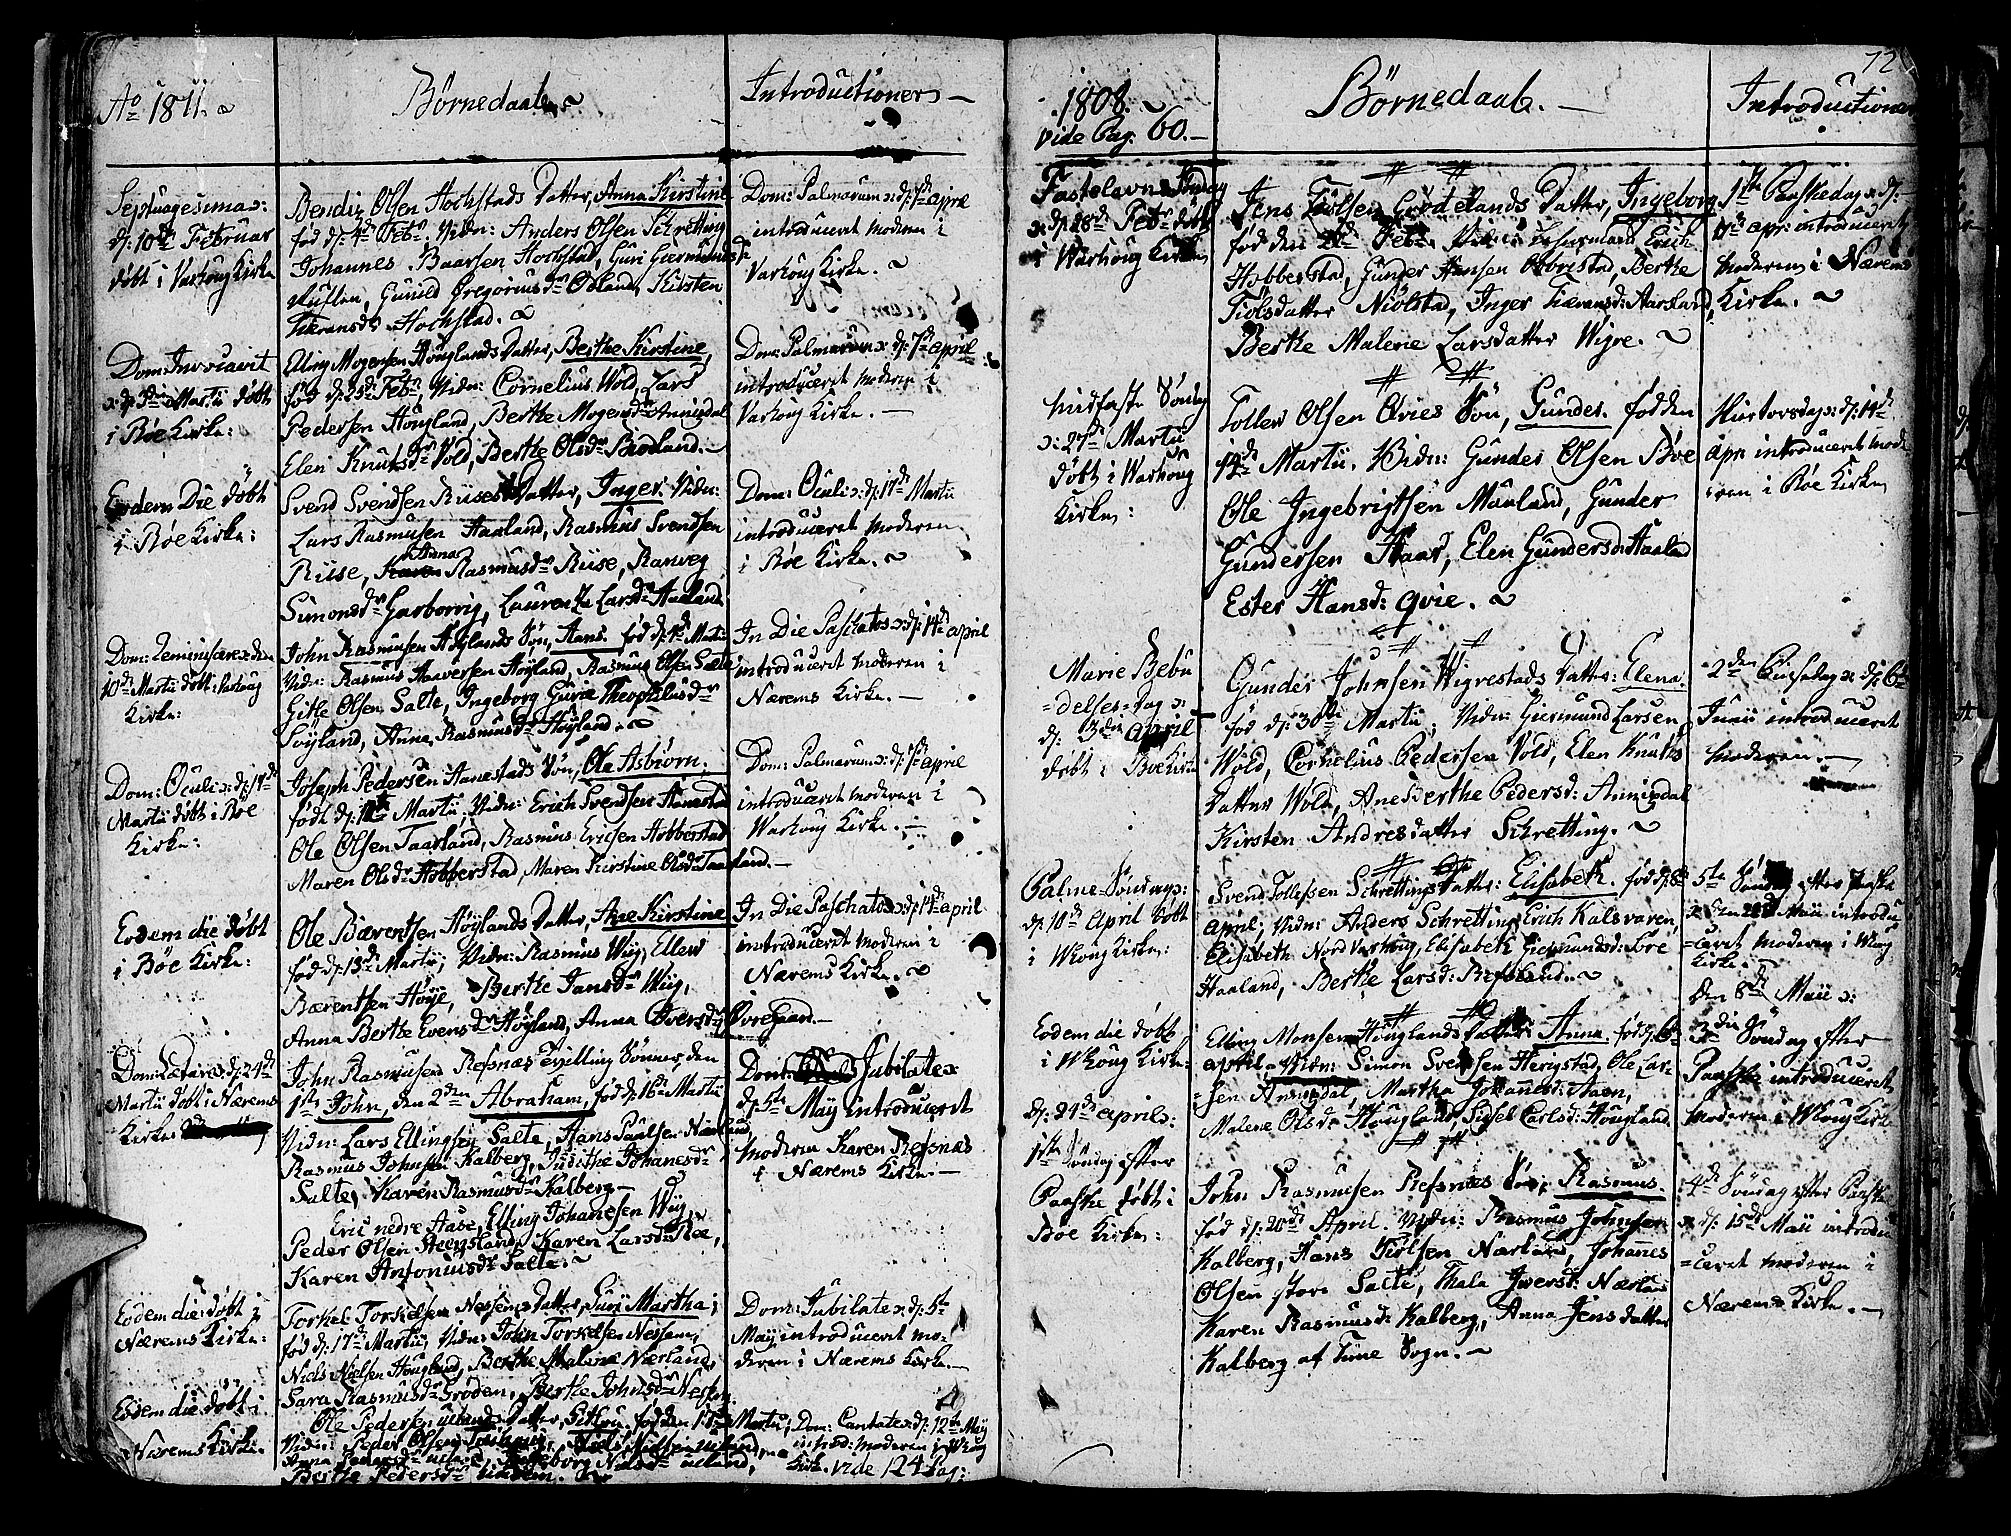 Ao 1811.
Børnedaab.
Introductioner
Septuagesima ɔ:
d: 10de Februar
døbt i Varhoug Kirke
Bendix Olsen Hochstads Datter, Anna Kirstine
fød d: 4de Febr. Vidn: Anders Olsen Schretting
Johannes Baarsen Hochstad, Guri Giermunds dr
Gunild Gregorius dr Odland, Kirsten
Hochstad.
Dom: Palmarum ɔ: d: 7de April
introduceret Moderen i
Varhoug Kirke.
Dom: Invocavit
ɔ: d: 3die Martii døbt
i Bøe Kirke:
Elling Mogensen Høuglands Datter, Berthe Kirstine,
fød d: 25de Febr, Vidn: Cornelius Wold, Lars
Pedersen Høugland, Berthe Mogensdr Anniudal
Elen Knutsdr Vold, Berthe Olsdr Birkland.
Dom: Palmarum ɔ: d: 7de April
introduceret Moderen i
Varhoug Kirke.
Eodem Die døbt
i Bøe Kirke:
Svend Svendsen Riises Datter, Inger. Vidn:
Lars Rasmusen Haaland, Rasmus Svendsen
Riise, Anna Rasmusdr Riise, Ranveg
Simonsdr Garborrig, Laurentze Larsdr Haaland
Dom: Oculi ɔ: d: 17de Martii
introduceret Moderen
i Bøe Kirke.
Dom: Reminiscere ɔ: den
10de Martii døbt i Varhoug
Kirke:
John Rasmusen Høylands Søn, Hans. fød d: 4de Martii
Vidn: Rasmus Haaversen Høyland, Rasmus Olsen Salte
Gitle Olsen Salte, Ingeborg Gurie Theophilusdr
Søyland, Anna Rasmusdr Høyland.
In Die Paschatos ɔ: d: 14de April
introduceret Moderen i
Nærems Kirke.
Dom: Oculi ɔ: d: 17de
Martii døbt i Bøe
Kirke:
Joseph Pedersen Hanestads Søn, Ole Asbiørn.
født d: Martii, Vidn: Erich Svendsen Hanestad
Ole Olsen Taarland, Rasmus Ericsen Hobberstad
Maren Olsdr Hobberstad, Maren Kirstine Olsdr Taarland.
Dom: Palmarum ɔ: d: 7de April
introduceret Moderen i
Warhoug Kirke.
Eodem die døbt
i Bøe Kirke:
Ole Bærentsen Høylands Datter, Ane Kirstine
fød d: 13de Martii, Vidn: Rasmus Wiig, Ellew
Bærentsen Høije, Berthe Jansdr Wiig,
Anna Berthe Evensdr Høyland, Anna Iversdr Øvregaard.
In Die Paschatos ɔ: d: 14de April
introduceret Moderen i
Nærems Kirke.
Dom: Letare ɔ: d: 24de
Martii døbt i Nærems
Kirke.
John Rasmusen Refsnæs Tvilling Sønner, den
1ste John, den 2den Abraham, fød d: 16de Martii
Vidn: Lars Ellingsen Salte, Hans Paulsen Nærland
Rasmus Johnsen Kalberg, Judithe Johanesdr
Salte, Karen Rasmusdr Kalberg
Eric nedre Aase, Elling Johanesen Wiig,
Peder Olsen Høugsland, Karen Larsdr Roe,
Karen Antoniusdr Salte.
Dom: Jubilate ɔ:
d: 5te Maij introduceret
Moderen Karen Refsnæs
i Nærems Kirke.
Eodem die døbt i
Nærems Kirke:
Torkel Torkelsen Nessems Datter, Guri Martha,
fød d: 17de Martii, Vidn: John Torkelsen Nessem,
Niels Nielsen Høugland, Berthe Malene Nærland,
Sara Rasmusdr Grøden, Berthe Johnsdr Nessem.
Dom: Jubilate ɔ: d: 5te
Maij introduceret Mo-
deren i Nærems Kirke.
Eodem die døbt i
Nærems Kirke.
Ole Pedersen uelands Datter, fød den 17de Martii,
Vidn: Peder Olsen
Anna Pedersdr ueland, Ingeborg Nielsdr ueland,
Berthe Pedersdr
Dom: Cantate ɔ: d: 12te Maij
introd: Moderen i Whoug
Kirk. vide 124 Pag:
72
1808.
vide Pag. 60.
Børnedaab.
Introductioner
Fastelavns Søndag
ɔ: d: 28de Febr døbt
i Warhoug Kirke
Jens Tiølsen Grødelands Datter, Ingeborg
fød den Febr. Vidn: Erich
Hobberstad, Gunder Hansen Obbrestad, Berthe
Tiølsdatter Niølstad, Inger Aarsland,
Berthe Malene Larsdatter Wigre.
1ste Paaskedag ɔ: d:
17de apr: introduceret
Moderen i Nærems
Kirke.
Midfaste Søndag
ɔ: 27de Martii
døbt i Warhoug
Kirke:
Tollev Olsen Qvies Søn, Gunder. fød den
14de Martii. Vidn: Gunder Olsen Bøe
Ole Ingebrigtsen Mauland, Gunder
Gundersen Haar, Elen Gundersd: Haaland
Ester Hansd: Qvie.
Skiertorsdag ɔ: d: 14de
Apr: introduceret Mode
ren i Bøe Kirke
Marie Bebu
delses-Dag ɔ:
d: 3die April
døbt i Bøe Kirke
Gunder Johnsen Wigrestads Datter: Elena.
fød d: 30te Martii. Vidn: Giermund Larsen
Wold, Cornelius Pedersen Vold, Elen Knuths
Datter Wold, Ane Berthe Pedersd: Anniudal
Kirsten Andresdatter Schretting.
2den Pindsedag ɔ: d: 6te
Junii introduceret
Moderen.
Palme-Søndag ɔ:
d: 10de April døbt
i Whoug Kirke:
Svend Tollefsen Schrettings Datter: Elisabeth. fød d: 6te
April; Vidn: Anders Schretting, Erich Kalsvaren,
Elisabeth Nord Varhoug, Elisabeth Giermundsd: Lore
Haaland, Berthe Larsd: Refsland.
5te Søndag efter Paaske
ɔ: den 22de Maii introdu
=ceret Moderen i Whoug
Kirke.
Eodem die døbt
i Whoug Kirke:
Elling Monsen Høuglands Datter Anna. fød d: 6te
April. Vidn: Simon Svendsen Herigstad, Ole Lar-
=sen Anniudal, Martha Johanesd: Aaen,
Malene Olsdr Høugland, Sidsel Carlsd: Høugland
Den 8de Maii ɔ:
3die Søndag efter
Paaske introduceret
Moderen i Whoug Kirke
d: 24de april ɔ:
1ste Søndag efter
Paaske døbt i
Bøe Kirke:
John Rasmusen Refsnæs Søn, Rasmus.
fød d: 20de April. Vidn: Rasmus Johnsen
Kalberg, Hans Tiølsen Nærland, Johannes
Olsen store Salte, Thala Iversd: Nærland
Karen Rasmusd: Kalberg, Anna Jensdatter
Kalberg af Time Sogn.
4de Søndag efter Paaske
ɔ: d: 15de Maii introdu
=ceret Moderen i
Nærems Kirke.